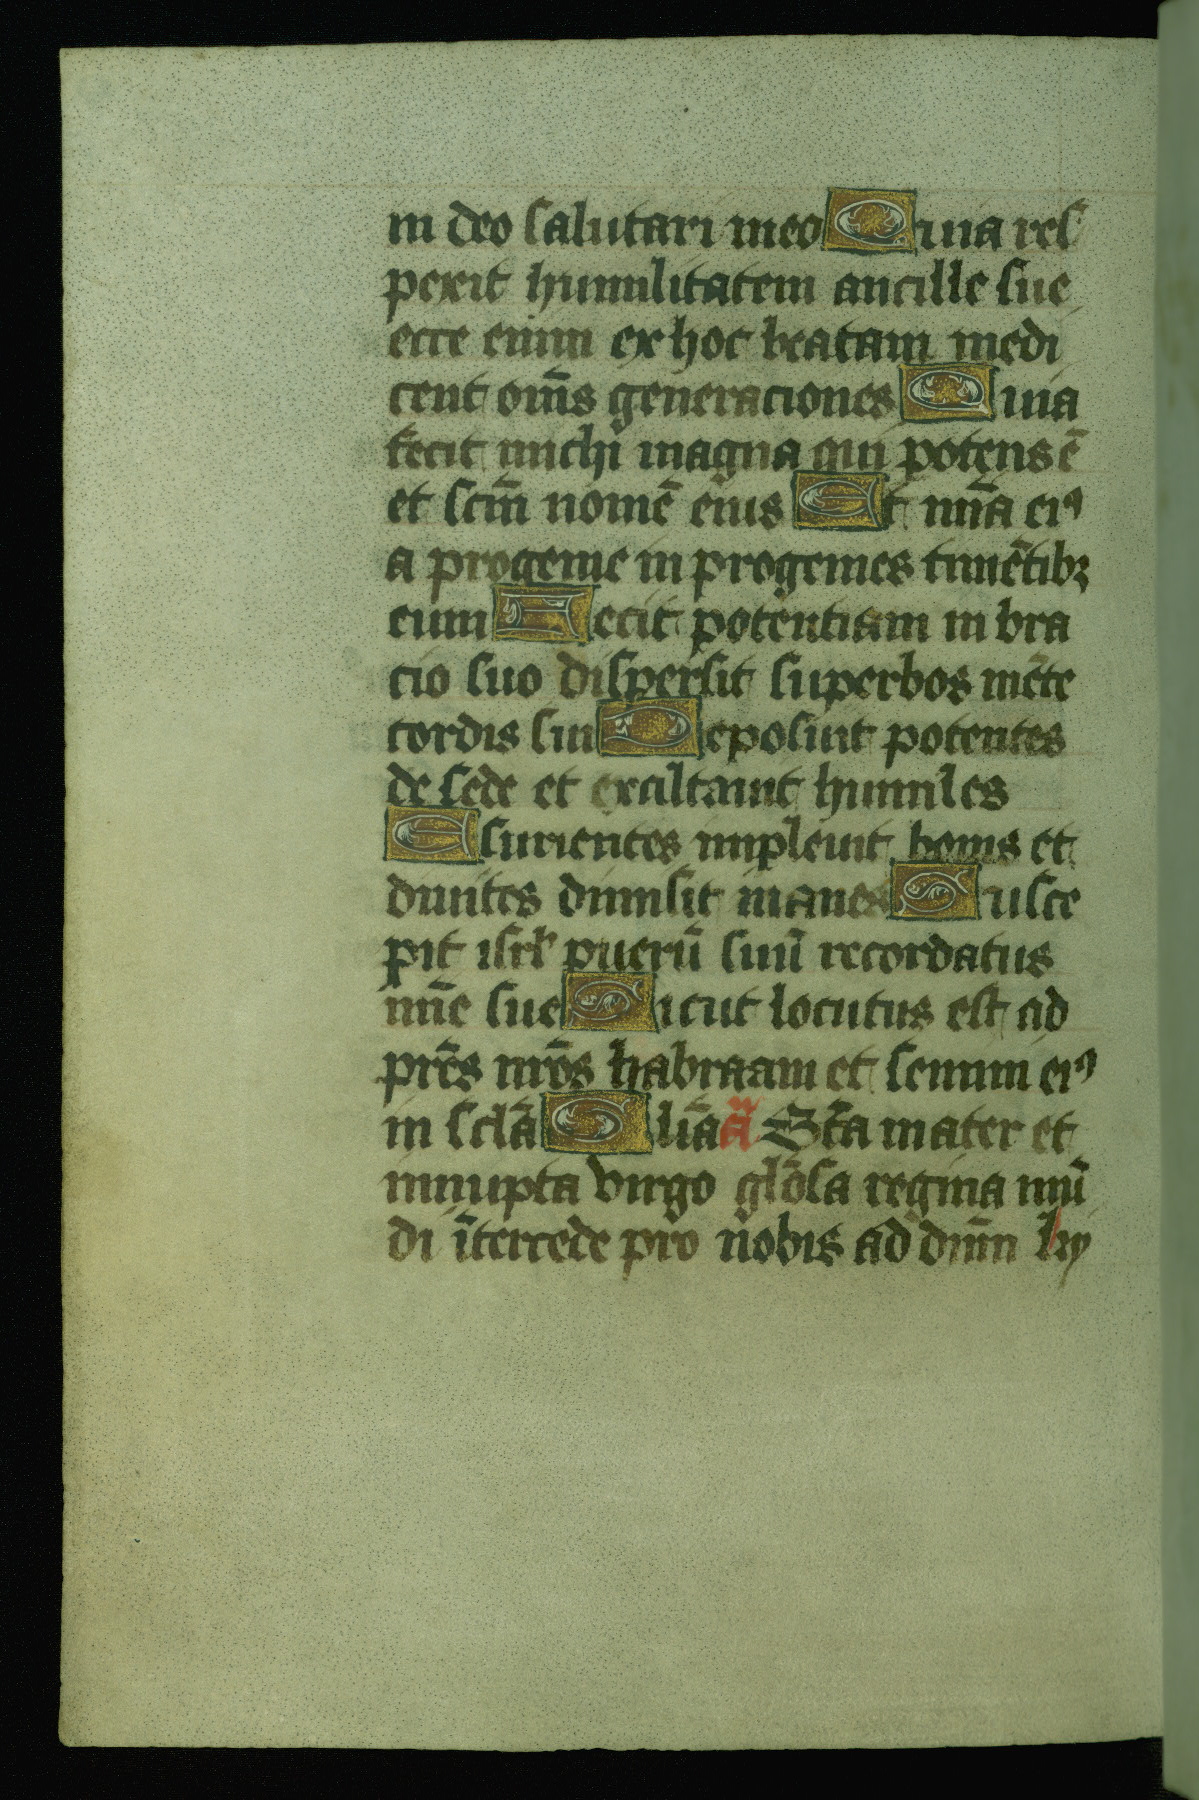 in deo salutari meo Quia res
pexit humilitatem ancille sue
ecce enim ex hoc beatam me di
cent om̄s generaciones Quia
fecit michi magna qui potens ē
et sc̄m nomē eius Et mīa eiꝰ
a progenie in progenies timētibꝫ
eum Fecit potentiam in bra
cio suo dispersit superbos mēte
cordis sui Deposuit potentes
de sede et exaltauit humiles
Esurientes impleuit bonis et
diuites dimisit inanes Susce
pit isrl̄ puerū suū recordatus
mīe sue Sicut locutus est ad
prēs nr̄os habraam et semini eiꝰ
in sclā Glīa ān̄ Sc̄ta mater et
innupta virgo glōsa regina mū
di ītercede pro nobis ad dnm̄ ky